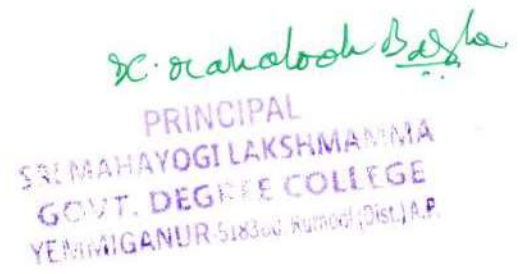 PRINCIPAL
SRI MAHAYOGI LAKSHMAMMA
GOVT. DEGREE COLLEGE
YEMMIGANUR-518360, Kurnool (Dist.) A.P.